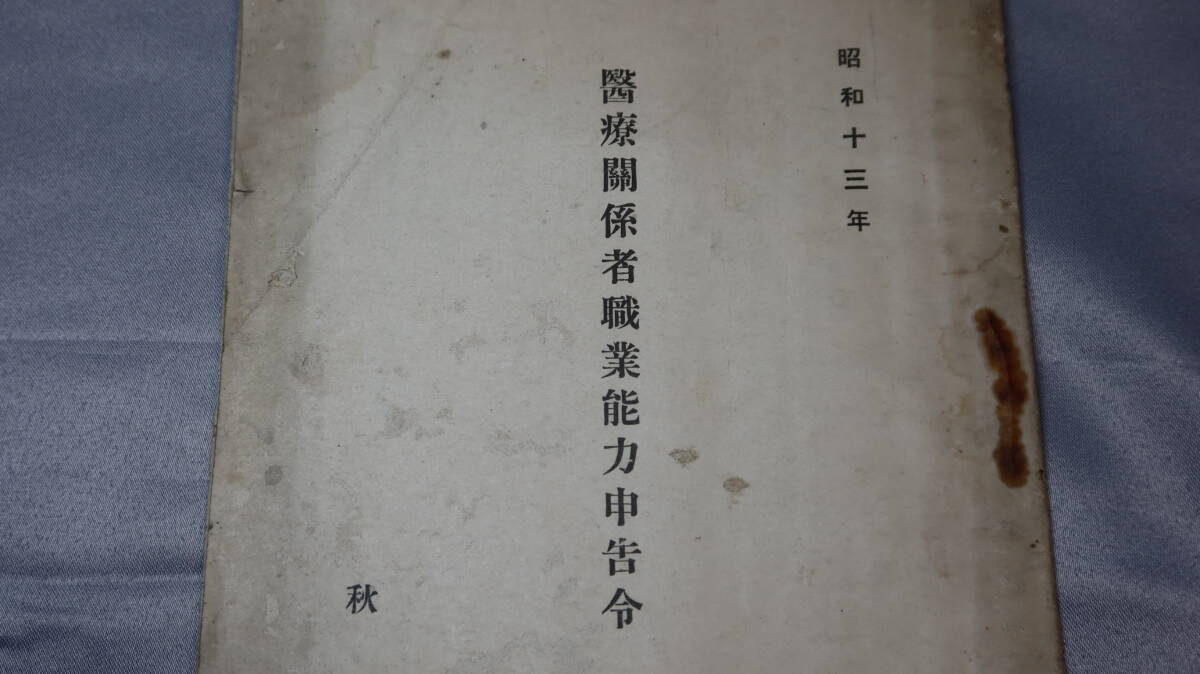 昭和十三年
醫療關係者職業能力申告令
秋